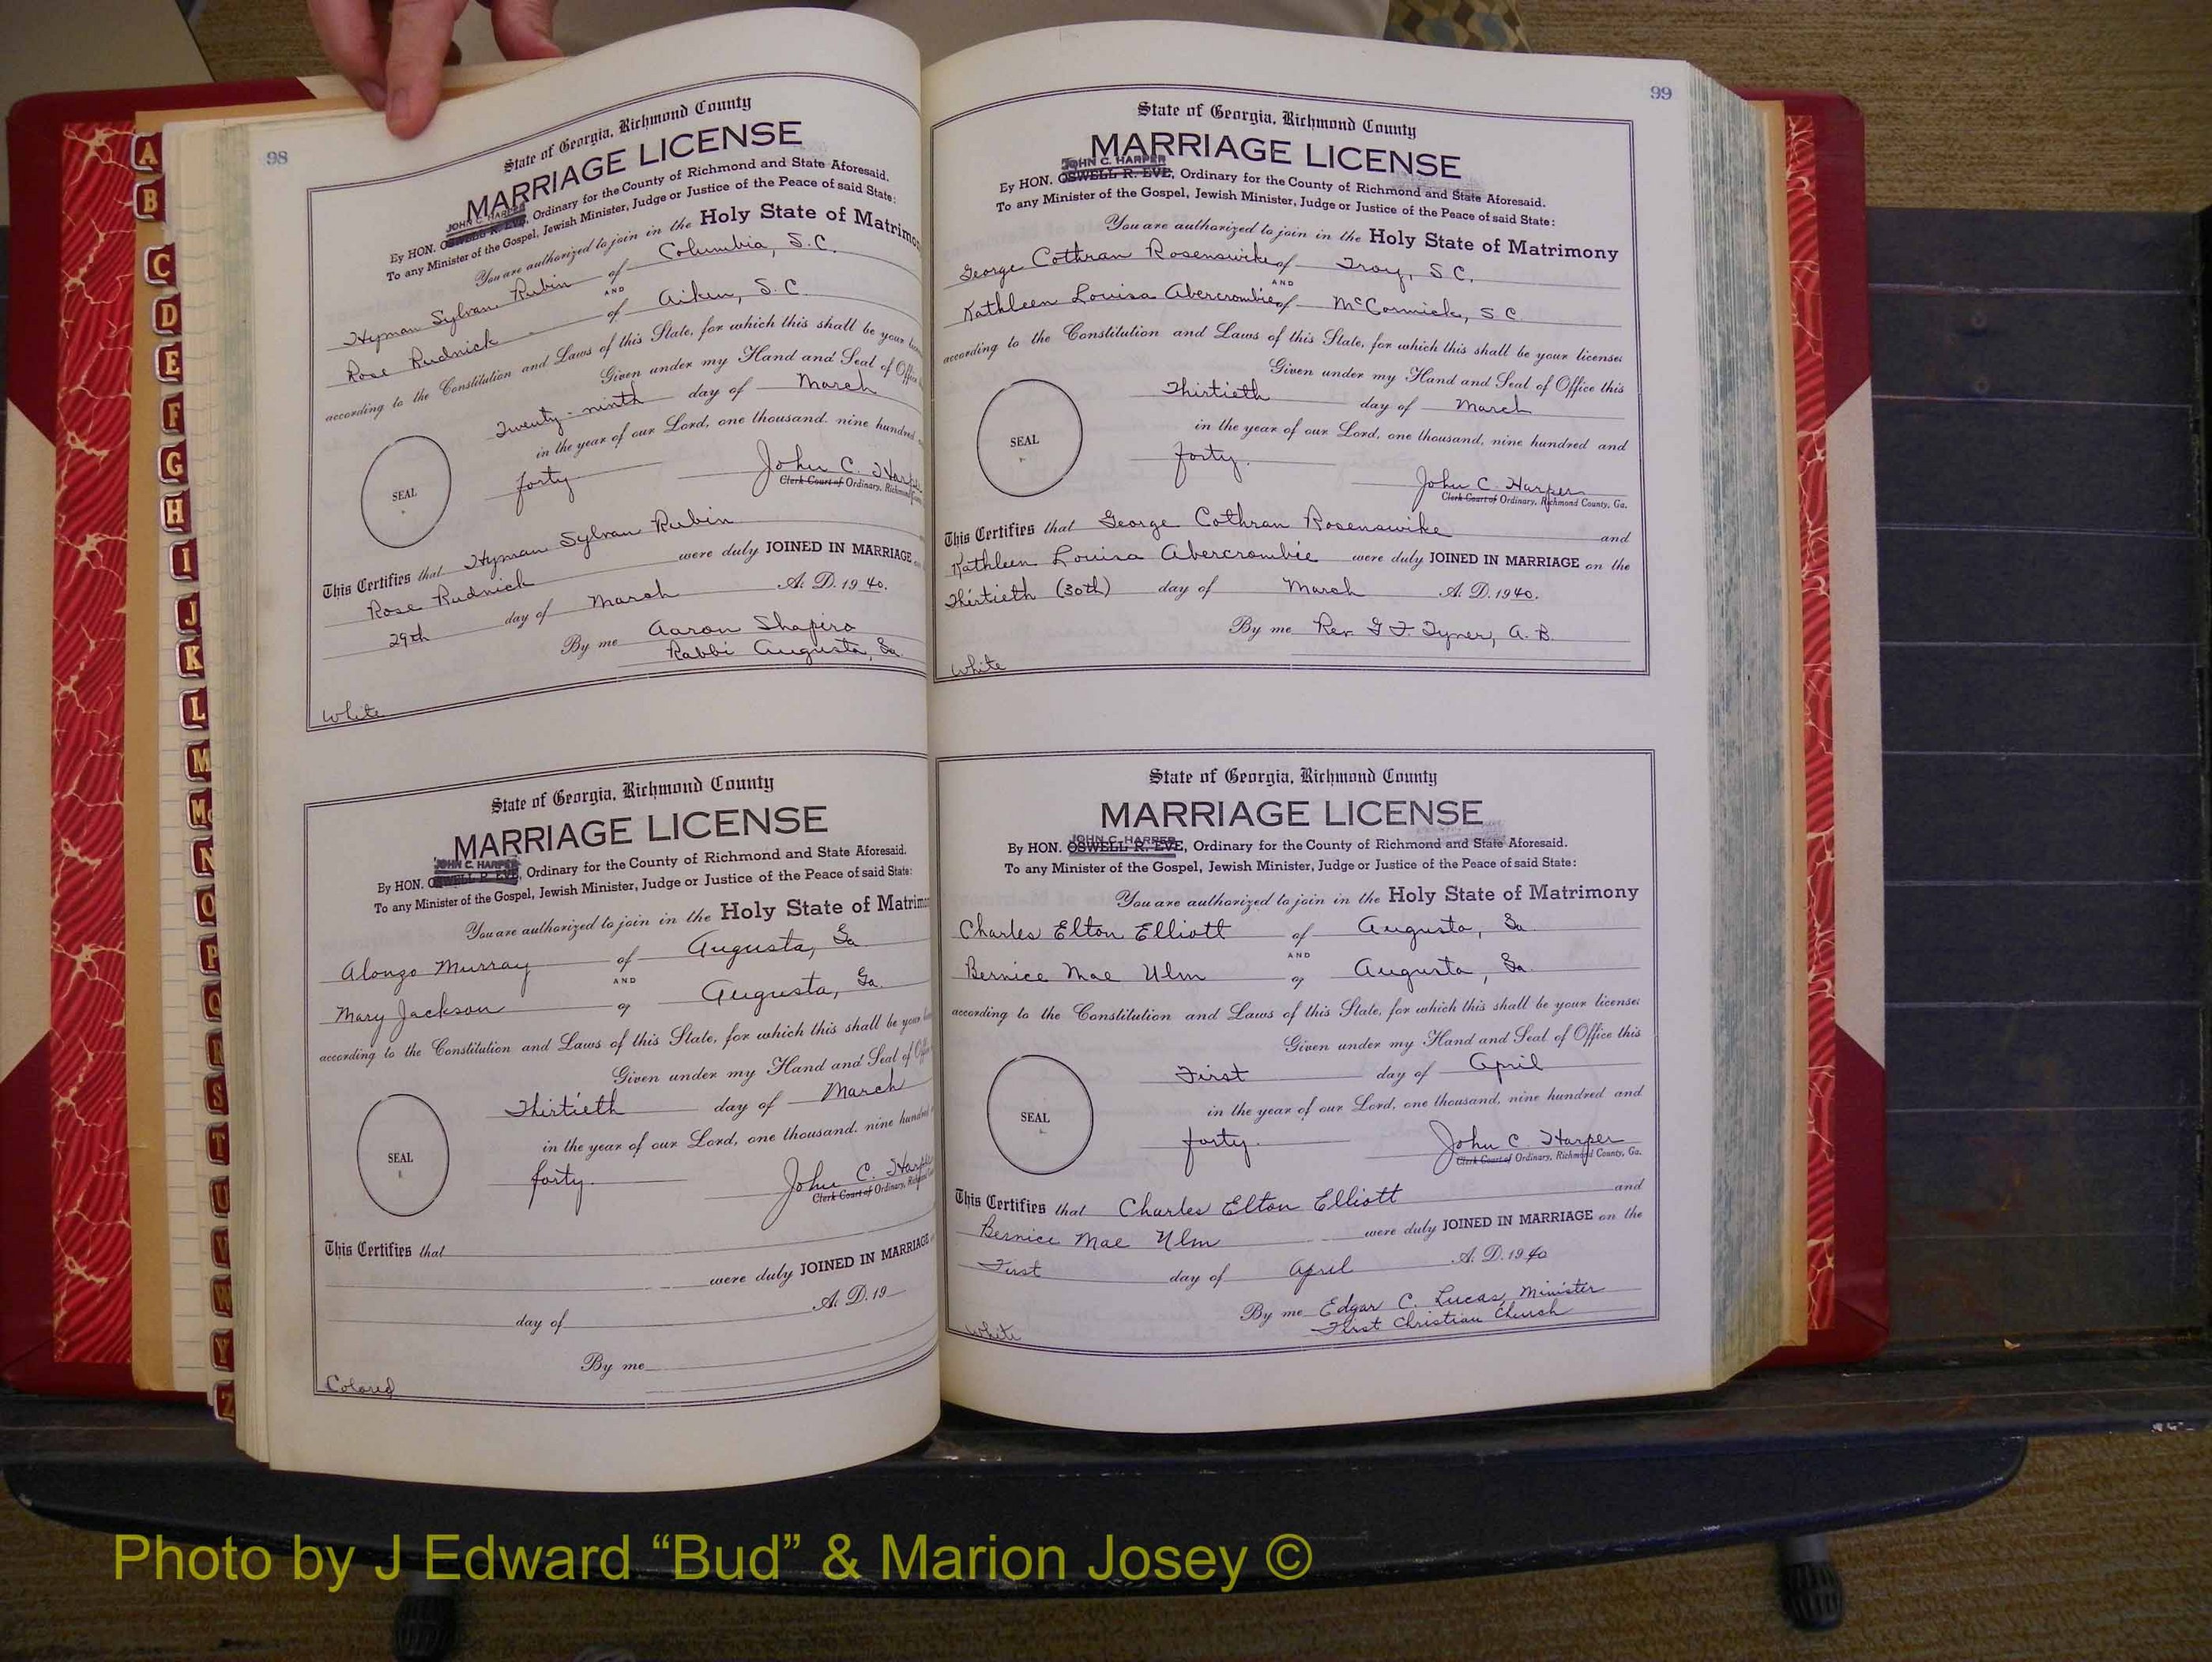 98
State of Georgia, Richmond County
MARRIAGE LICENSE
JOHN C. HARPER
By HON. OSWELL R. EVE, Ordinary for the County of Richmond and State Aforesaid.
To any Minister of the Gospel, Jewish Minister, Judge or Justice of the Peace of said State:
You are authorized to join in the Holy State of Matrimo
Hyman Sylvan Rubin of Columbia, S.C.
AND
Rose Rudnick of Aiken, S.C.
according to the Constitution and Laws of this State, for which this shall be your
Given under my Hand and Seal of Offic
Twenty-ninth day of March
in the year of our Lord, one thousand, nine hundred
forty
John C. Harp
Clerk Court of Ordinary, Richmond
SEAL
This Certifies that Hyman Sylvan Rubin
Rose Rudnick were duly JOINED IN MARRIAGE
29th day of March A. D. 1940.
By me Aaron Shapiro
Rabbi Augusta, Ga.
White
State of Georgia, Richmond County
MARRIAGE LICENSE
JOHN C. HARPER
By HON. OSWELL R. EVE, Ordinary for the County of Richmond and State Aforesaid.
To any Minister of the Gospel, Jewish Minister, Judge or Justice of the Peace of said State:
You are authorized to join in the Holy State of Matrimo
Alonzo Murray of Augusta, Ga
AND
Mary Jackson of Augusta, Ga.
according to the Constitution and Laws of this State, for which this shall be your
Given under my Hand and Seal of Offi
Thirtieth day of March
in the year of our Lord, one thousand, nine hundred
forty.
John C. Harp
Clerk Court of Ordinary, Rich
SEAL
This Certifies that
were duly JOINED IN MARRIAGE
day of A. D. 19
By me
Colored
99
State of Georgia, Richmond County
MARRIAGE LICENSE
JOHN C. HARPER
By HON. OSWELL R. EVE, Ordinary for the County of Richmond and State Aforesaid.
To any Minister of the Gospel, Jewish Minister, Judge or Justice of the Peace of said State:
You are authorized to join in the Holy State of Matrimony
George Cothran Rosenswike of Troy, S.C.
AND
Kathleen Louisa Abercrombie of McCormick, S.C.
according to the Constitution and Laws of this State, for which this shall be your license:
Given under my Hand and Seal of Office this
Thirtieth day of March
in the year of our Lord, one thousand, nine hundred and
forty.
John C. Harper
Clerk Court of Ordinary, Richmond County, Ga.
SEAL
This Certifies that George Cothran Rosenswike and
Kathleen Louisa Abercrombie were duly JOINED IN MARRIAGE on the
Thirtieth (30th) day of March A. D. 1940.
By me Rev. G F. Tyner, A. B.
White
State of Georgia, Richmond County
MARRIAGE LICENSE
JOHN C. HARPER
By HON. OSWELL R. EVE, Ordinary for the County of Richmond and State Aforesaid.
To any Minister of the Gospel, Jewish Minister, Judge or Justice of the Peace of said State:
You are authorized to join in the Holy State of Matrimony
Charles Elton Elliott of Augusta, Ga.
AND
Bernice Mae Ulm of Augusta, Ga.
according to the Constitution and Laws of this State, for which this shall be your license:
Given under my Hand and Seal of Office this
First day of April
in the year of our Lord, one thousand, nine hundred and
forty.
John C. Harper
Clerk Court of Ordinary, Richmond County, Ga.
SEAL
This Certifies that Charles Elton Elliott and
Bernice Mae Ulm were duly JOINED IN MARRIAGE on the
First day of April A. D. 1940
By me Edgar C. Lucas, Minister
First Christian Church
White
A
B
C
D
E
F
G
H
I
J
K
L
M
Mc
N
O
P
Q
R
S
T
U
V
W
Y
Z
Photo by J Edward “Bud” & Marion Josey ©